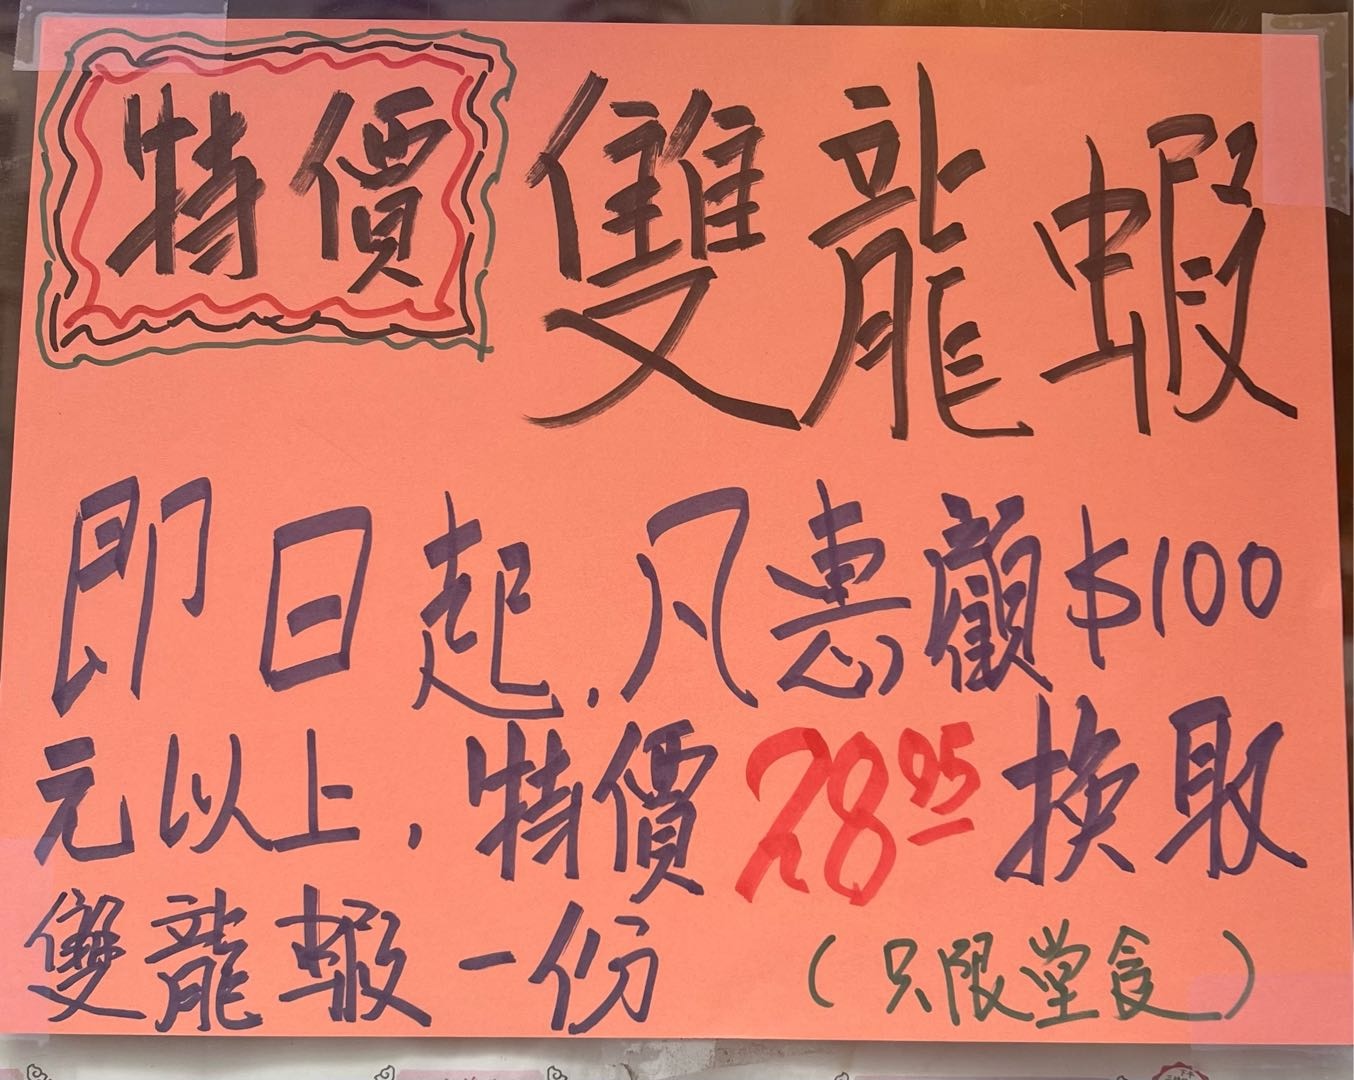 特價 雙龍蝦
即日起，凡惠顧$100
元以上，特價28.95換取
雙龍蝦一份 （只限堂食）